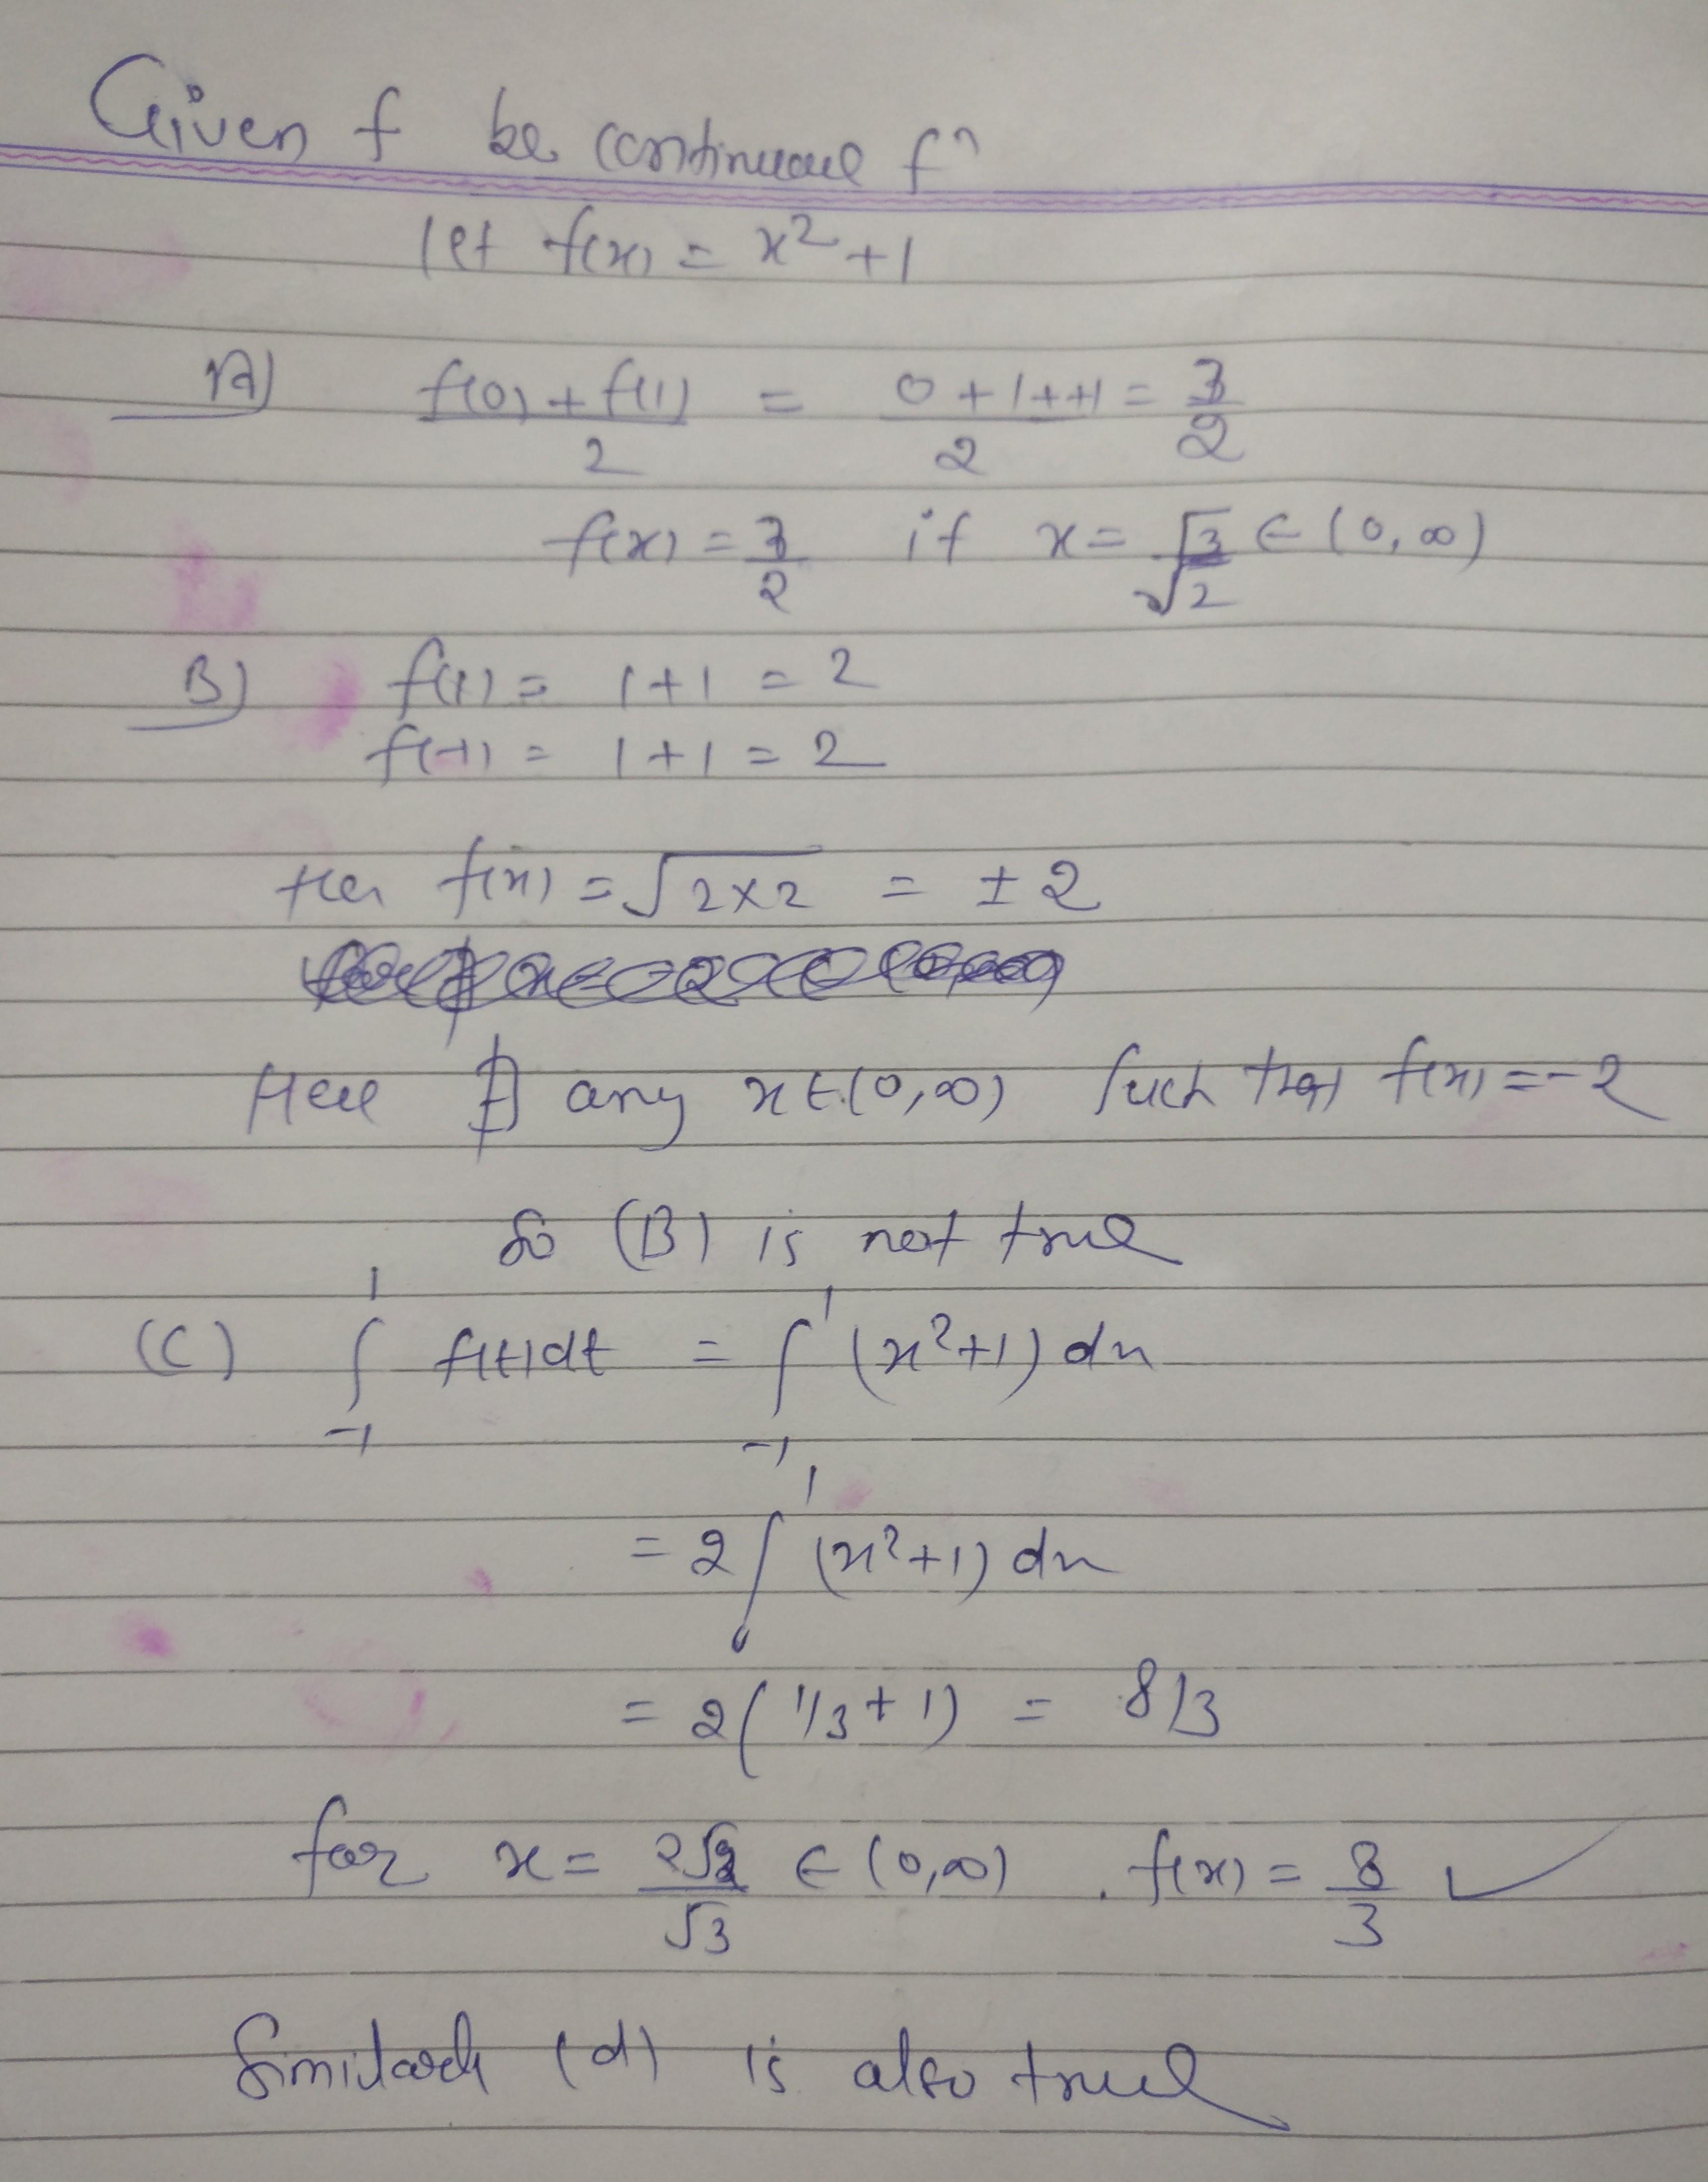 Given f be continuous fⁿ
let f(x) = x²+1
A) f(0)+f(1)/2 = 0+1+1+1/2 = 3/2
f(x) = 3/2 if x = √3/√2 ∈ (0,∞)
B) f(1) = 1+1 = 2
f(-1) = 1+1 = 2
then f(x) = √2×2 = ±2
Here ∄ any x∈(0,∞) such that f(x) = -2
So (B) is not true
(C) ∫₋₁¹ f(t)dt = ∫₋₁¹ (x²+1) dx
= 2∫₀¹ (x²+1) dx
= 2(1/3+1) = 8/3
for x = 2√2/√3 ∈ (0,∞) . f(x) = 8/3 ✓
Similarly (d) is also true